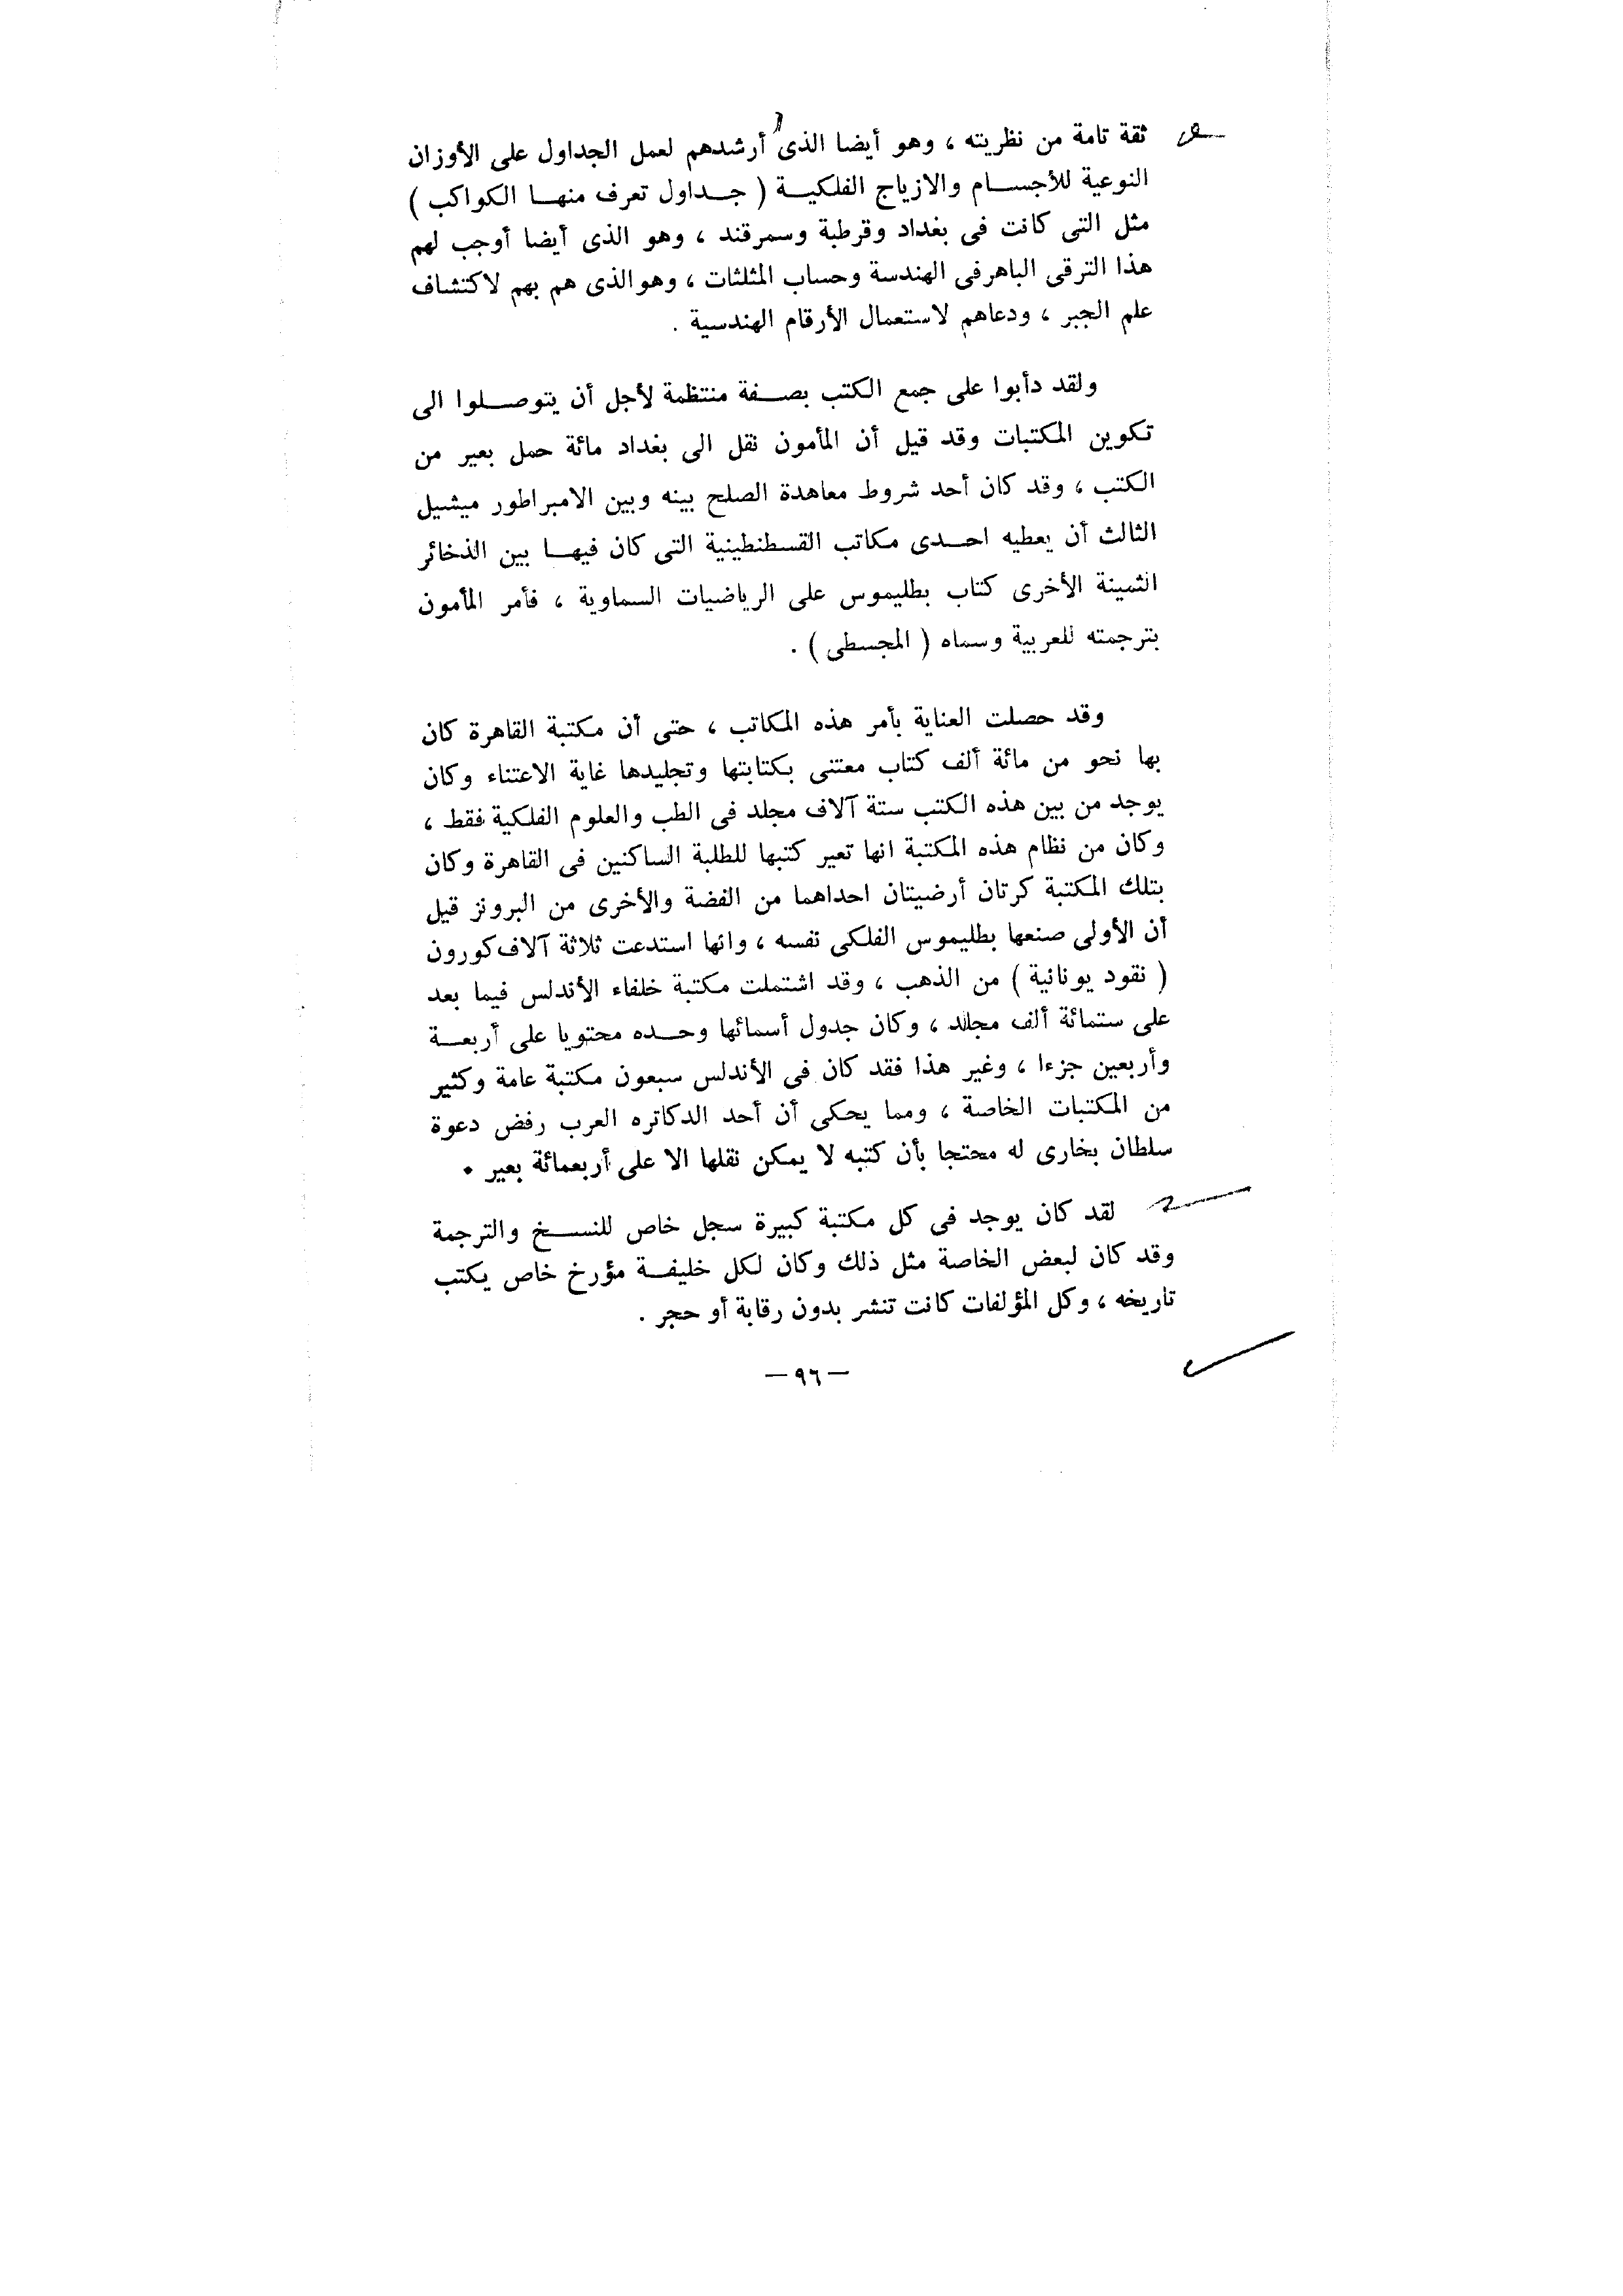 ثقة تامة من نظريته ، وهو أيضا الذى أرشدهم لعمل الجداول على الأوزان
النوعية للأجسام والازياج الفلكية ( جداول تعرف منها الكواكب )
مثل التى كانت فى بغداد وقرطبة وسمرقند ، وهو الذى أيضا أوجب لهم
هذا الترقى الباهر فى الهندسة وحساب المثلثات ، وهو الذى هم بهم لاكتشاف
علم الجبر ، ودعاهم لاستعمال الأرقام الهندسية .
ولقد دأبوا على جمع الكتب بصفة منتظمة لأجل أن يتوصلوا الى
تكوين المكتبات وقد قيل أن المأمون نقل الى بغداد مائة حمل بعير من
الكتب ، وقد كان أحد شروط معاهدة الصلح بينه وبين الامبراطور ميشيل
الثالث أن يعطيه احدى مكاتب القسطنطينية التى كان فيها بين الذخائر
الثمينة الأخرى كتاب بطليموس على الرياضيات السماوية ، فأمر المأمون
بترجمته للعربية وسماه ( المجسطى ) .
وقد حصلت العناية بأمر هذه المكاتب ، حتى أن مكتبة القاهرة كان
بها نحو من مائة ألف كتاب معتنى بكتابتها وتجليدها غاية الاعتناء وكان
يوجد من بين هذه الكتب ستة آلاف مجلد فى الطب والعلوم الفلكية فقط ،
وكان من نظام هذه المكتبة انها تعير كتبها للطلبة الساكنين فى القاهرة وكان
بتلك المكتبة كرتان أرضيتان احداهما من الفضة والأخرى من البرونز قيل
أن الأولى صنعها بطليموس الفلكى نفسه ، وانها استدعت ثلاثة آلاف كورون
( نقود يونانية ) من الذهب ، وقد اشتملت مكتبة خلفاء الأندلس فيما بعد
على ستمائة ألف مجلد ، وكان جدول أسمائها وحده محتويا على أربعة
وأربعين جزءا ، وغير هذا فقد كان فى الأندلس سبعون مكتبة عامة وكثير
من المكتبات الخاصة ، ومما يحكى أن أحد الدكاتره العرب رفض دعوة
سلطان بخارى له محتجا بأن كتبه لا يمكن نقلها الا على أربعمائة بعير .
لقد كان يوجد فى كل مكتبة كبيرة سجل خاص للنسخ والترجمة
وقد كان لبعض الخاصة مثل ذلك وكان لكل خليفة مؤرخ خاص يكتب
تاريخه ، وكل المؤلفات كانت تنشر بدون رقابة أو حجر .
— ٩٦ —